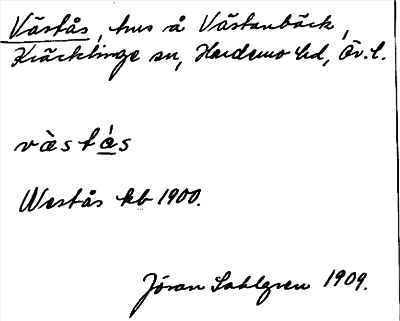 Västås, hus å Västanbäck,
Kräcklinge sn, Hardemo hd, Ör. l.
västås
Westås kb 1900.
Jöran Sahlgren 1909.